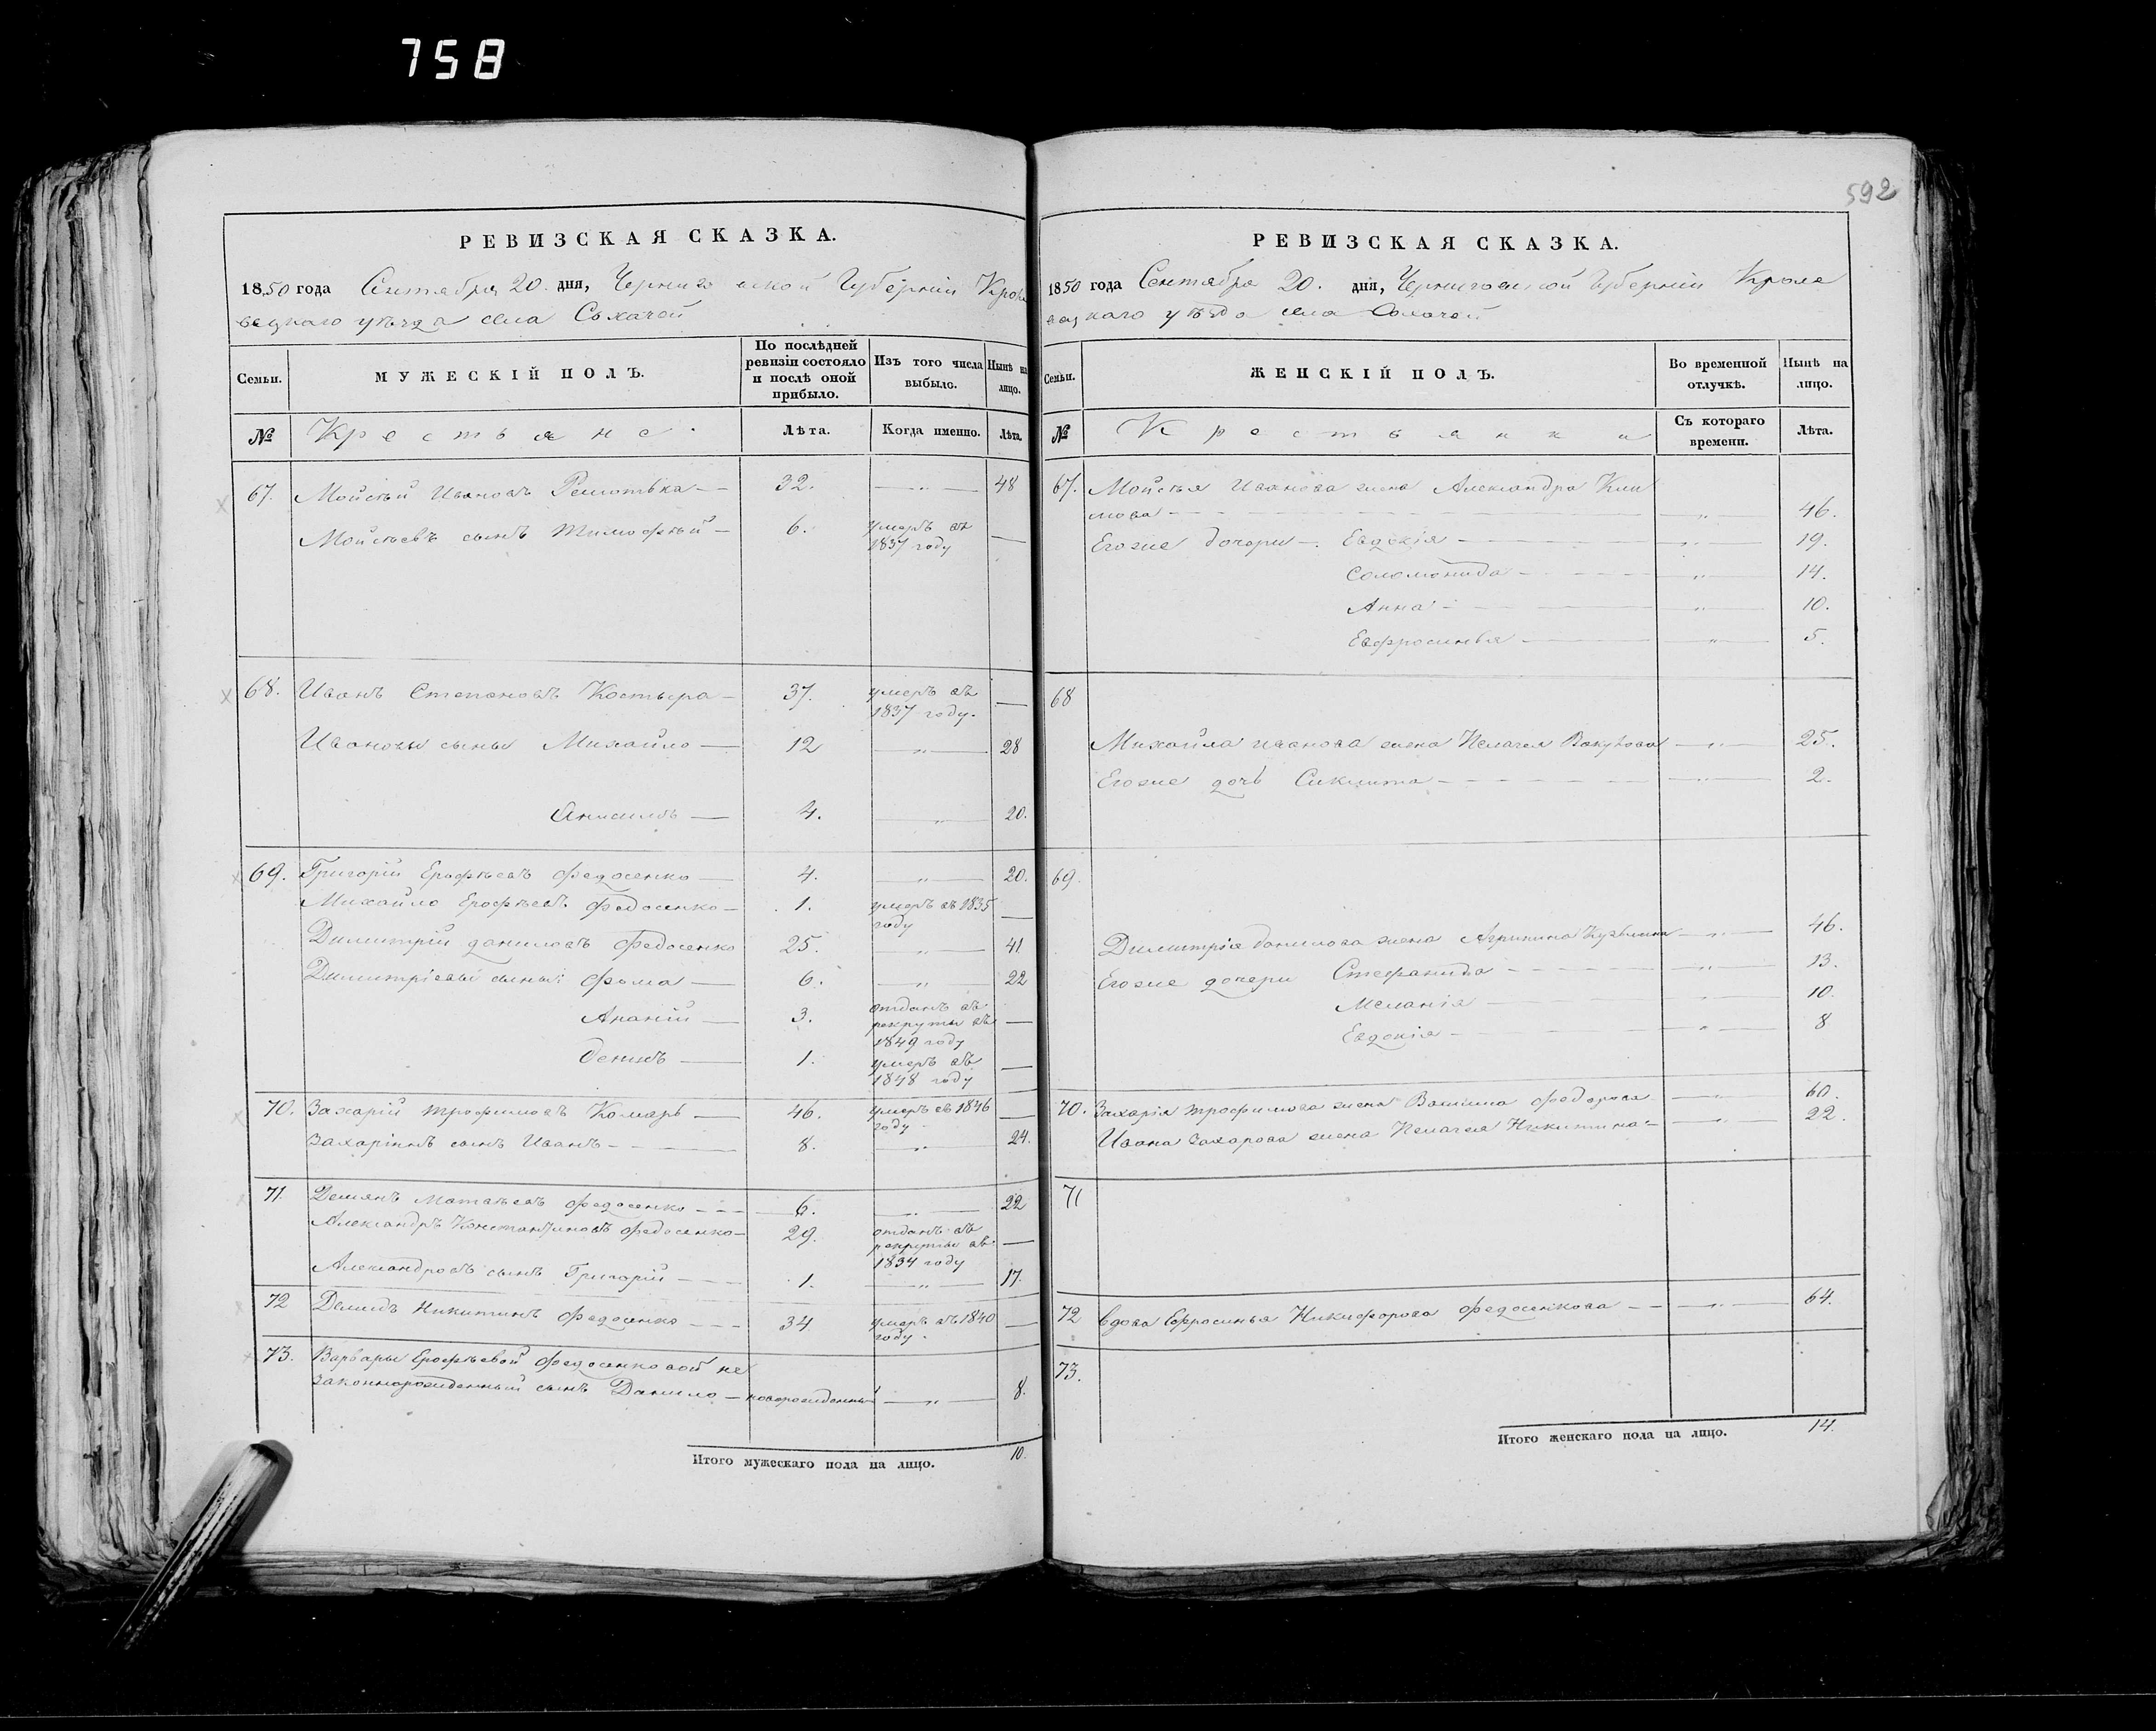 758
592
РЕВИЗСКАЯ СКАЗКА.
1850 года Сентября 20. дня, Черниговской Губерніи Кроле
вецкаго уѣзда села
Семьи.
МУЖЕСКІЙ ПОЛЪ.
По послѣдней ревизіи состояло и послѣ оной прибыло.
Изъ того числа выбыло.
Нынѣ на лицо.
№ Крестьяне Лѣта. Когда именно. Лѣта.
67. Мойсѣй Ивановъ 32. — „ — 48
Мойсѣевъ сынъ Тимофѣй — 6. умеръ въ 1837 году —
68. Иванъ Степановъ Костыра — 37. умеръ въ 1837 году. —
Ивановы сыны Михайло — 12 — „ — 28
Анисимъ — 4. — „ — 20.
69. Григорій Ерофѣевъ Федосенко — 4. — „ — 20.
Михайло Ерофѣевъ Федосенко — 1. умеръ въ 1835 году —
Димитрій Даниловъ Федосенко 25. — „ — 41
Димитріевы сыны: Фома — 6. — „ — 22
Ананій — 3. отданъ въ рекруты въ 1849 году —
Денисъ — 1. умеръ въ 1848 году —
70. Захарій Трофимовъ Комаръ — 46. умеръ въ 1846 году —
Захаріинъ сынъ Иванъ — 8. — „ — 24.
71. Демянъ Матвѣевъ Федосенко — 6. — „ — 22
Александръ Константиновъ Федосенко — 29. отданъ въ рекруты въ 1834 году —
Александровъ сынъ Григорій — 1. — „ — 17.
72 Демидъ Никитинъ Федосенко — 34 умеръ въ 1840 году. —
73. Варвары Ерофѣевой Федосенковой не
законнорожденный сынъ Данило — новорожденный — „ — 8.
Итого мужескаго пола на лицо. 10.
РЕВИЗСКАЯ СКАЗКА.
1850 года Сентября 20. дня, Черниговской Губерніи Кроле
вецкаго уѣзда села
Семьи.
ЖЕНСКІЙ ПОЛЪ.
Во временной отлучкѣ.
Нынѣ на лицо.
№ Крестьянки Съ котораго времени. Лѣта.
67. Мойсѣя Иванова жена Александра Кли
мова — „ — 46.
Егоже дочери — Евдокія — „ — 19.
Соломонида — „ — 14.
Анна — „ — 10.
Евфросинья — „ — 5.
68
Михайла Иванова жена Пелагея — „ — 25.
Егоже дочь — „ — 2.
69.
Димитрія Данилова жена Агрипина Кузьмина — „ — 46.
Егоже дочери Стефанида — „ — 13.
Меланія — „ — 10.
Евдокія — „ — 8
70. Захарія Трофимова жена Федорова — „ — 60.
Ивана Захарова жена Пелагея Никитина — „ — 22.
71
72 Вдова Ефросинья Никифорова Федосенкова — „ — 64.
73.
Итого женскаго пола на лицо. 14.